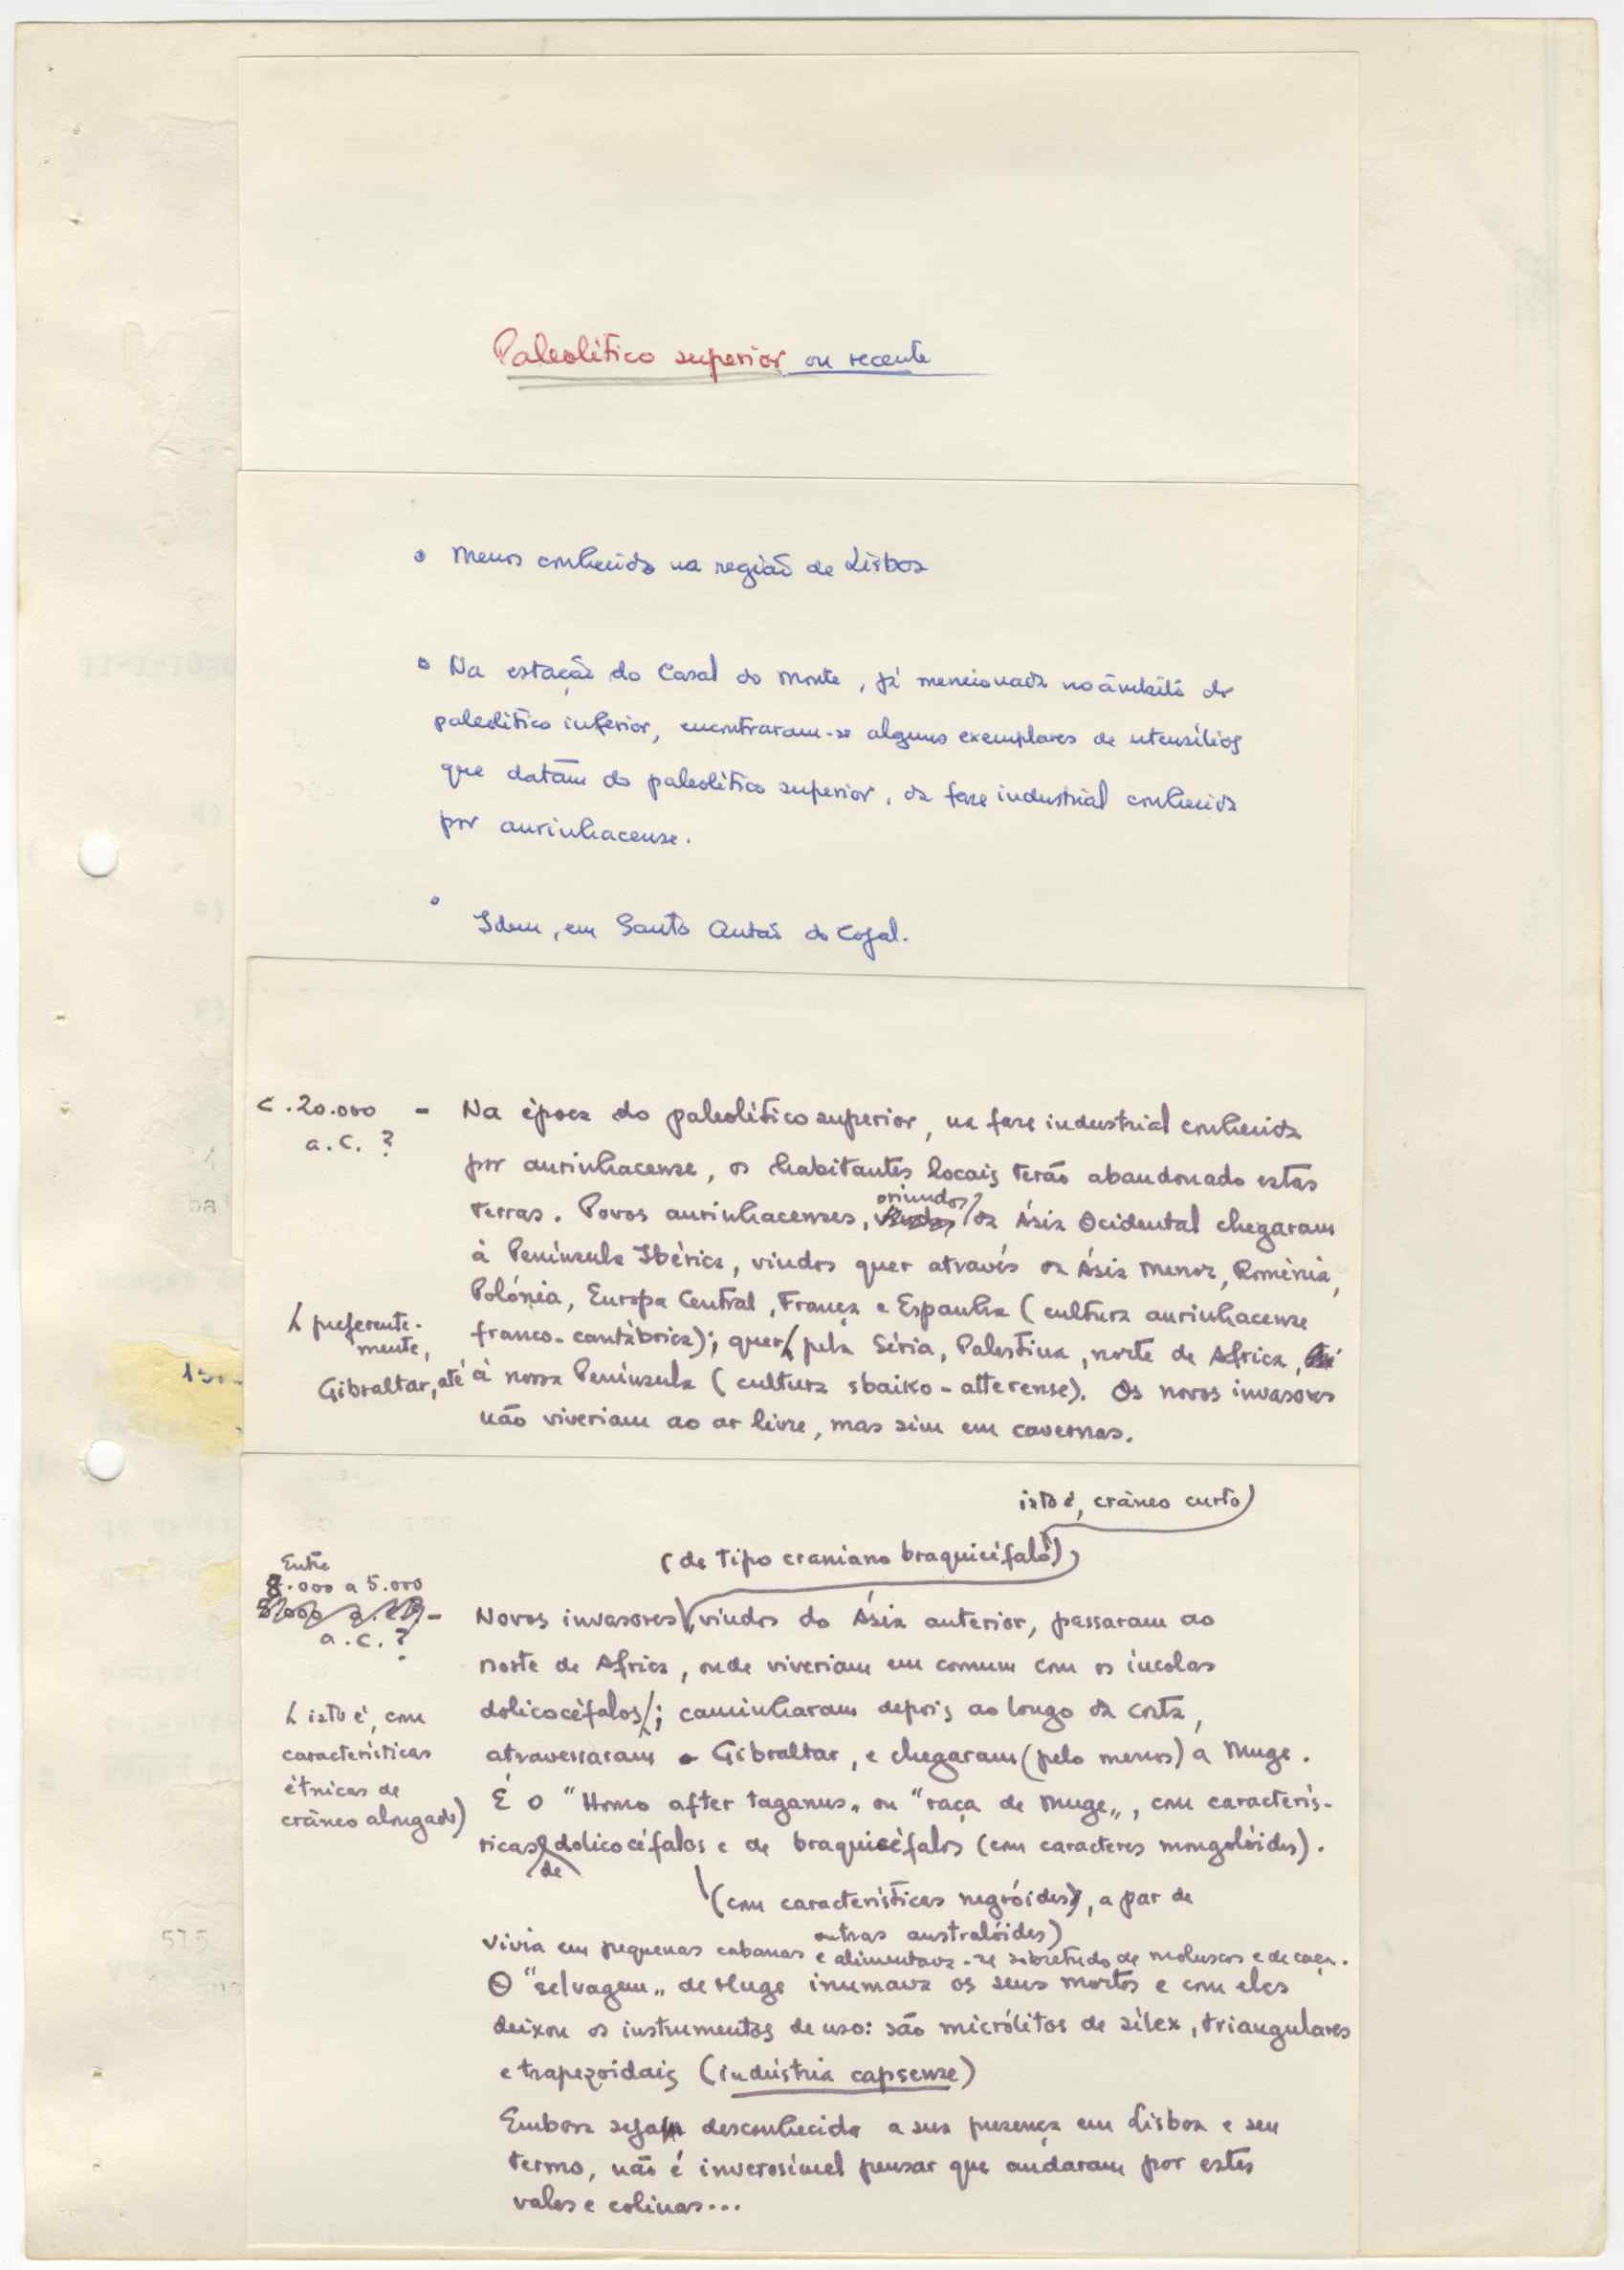 Paleolítico superior ou recente
• Menos conhecido na região de Lisboa
• Na estação do Casal do Monte, já mencionada no âmbito do
paleolítico inferior, encontraram-se alguns exemplares de utensílios
que datam do paleolítico superior, da fase industrial conhecida
por aurinhacense.
• Idem, em Santo Antão do Tojal.
c. 20.000 – Na época do paleolítico superior, na fase industrial conhecida
a.C. ?
por aurinhacense, os habitantes locais terão abandonado estas
oriundos
terras. Povos aurinhacenses, da Ásia Ocidental chegaram
à Península Ibérica, vindos quer através da Ásia Menor, Roménia,
Polónia, Europa Central, França e Espanha (cultura aurinhacense
preferente-
mente,
franco-cantábrica); quer pela Síria, Palestina, norte de Africa,
Gibraltar, até à nossa Península (cultura sbaiko-atterense). Os novos invasores
não viveriam ao ar livre, mas sim em cavernas.
isto é, crâneo curto)
(de tipo craniano braquicéfalo)
Entre
8.000 a 5.000
a.C. ?
Novos invasores, vindos do Ásia anterior, passaram ao
norte de Africa, onde viveriam em comum com os íncolas
dolicocéfalos; caminharam depois ao longo da costa,
isto é, com
características
étnicas de
crâneo alongado)
atravessaram Gibraltar, e chegaram (pelo menos) a Muge.
É o "Homo after taganus" ou "raça de Muge", com caracterís-
ricas dolicocéfalos e de braquicéfalos (com caracteres mongolóides).
de
(com características negróides, a par de
outras australóides)
Vivia em pequenas cabanas e alimentava-se sobretudo de moluscos e de caça.
O "selvagem" de Muge inumava os seus mortos e com eles
deixou os instrumentos de uso: são micrólitos de sílex, triangulares
e trapezoidais (indústria capsense)
Embora seja desconhecida a sua presença em Lisboa e seu
termo, não é inverosímel pensar que andaram por estes
vales e colinas...